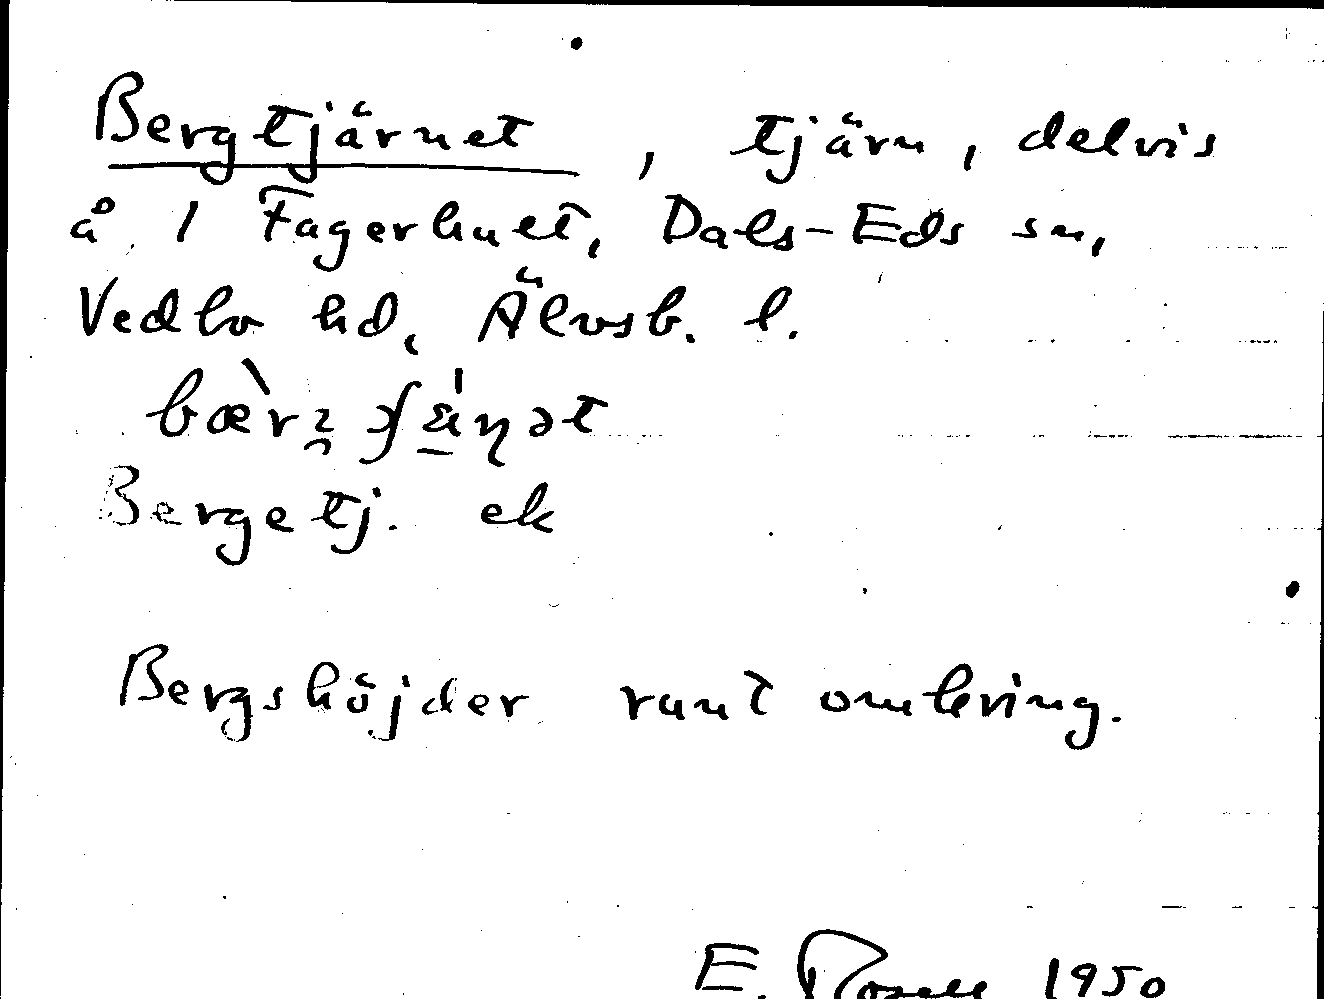 Bergtjärnet, tjärn, delvis
å 1 Fagerhult, Dals-Eds sn,
Vedbo hd, Älvsb. l.
Bergetj. ek
Bergshöjder runt omkring.
E. Rosell 1950